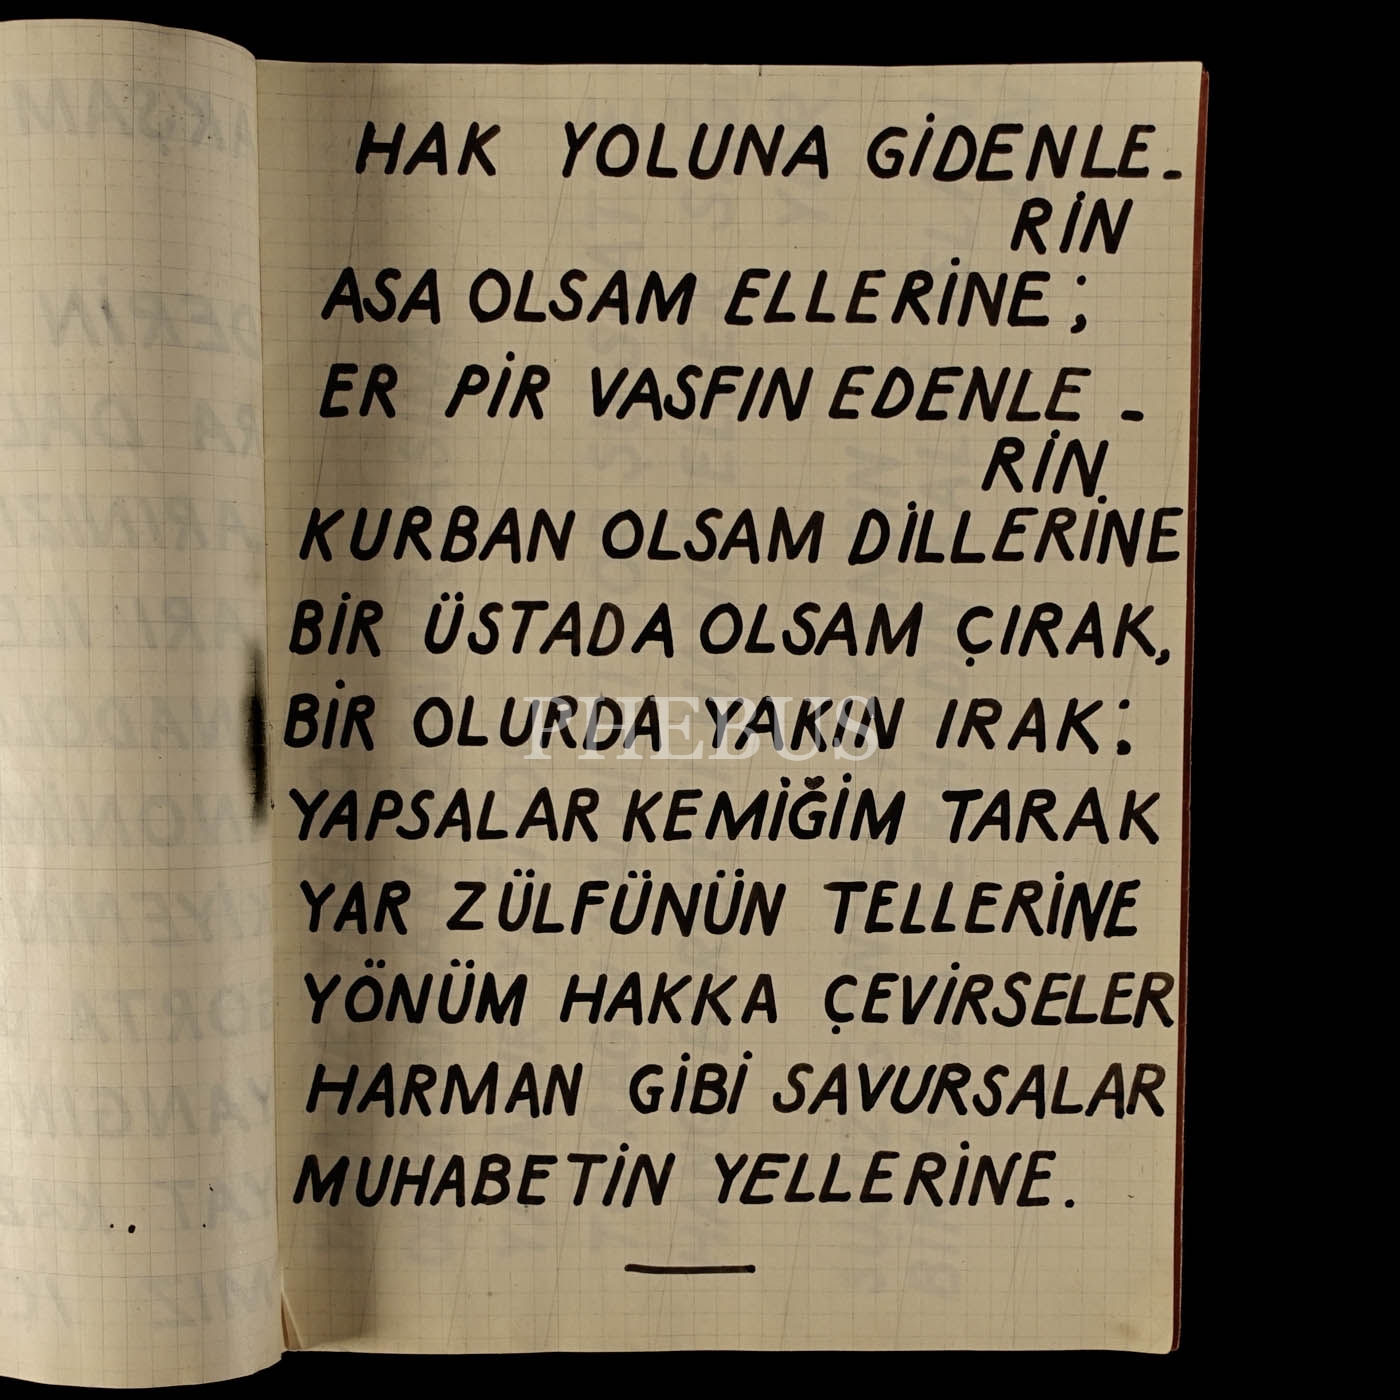 HAK YOLUNA GİDENLE-
RİN
ASA OLSAM ELLERİNE;
ER PİR VASFIN EDENLE-
RİN.
KURBAN OLSAM DİLLERİNE
BİR ÜSTADA OLSAM ÇIRAK,
BİR OLURDA YAKIN IRAK:
PHEBUS
YAPSALAR KEMİĞİM TARAK
YAR ZÜLFÜNÜN TELLERİNE
YÖNÜM HAKKA ÇEVİRSELER
HARMAN GİBİ SAVURSALAR
MUHABETİN YELLERİNE.